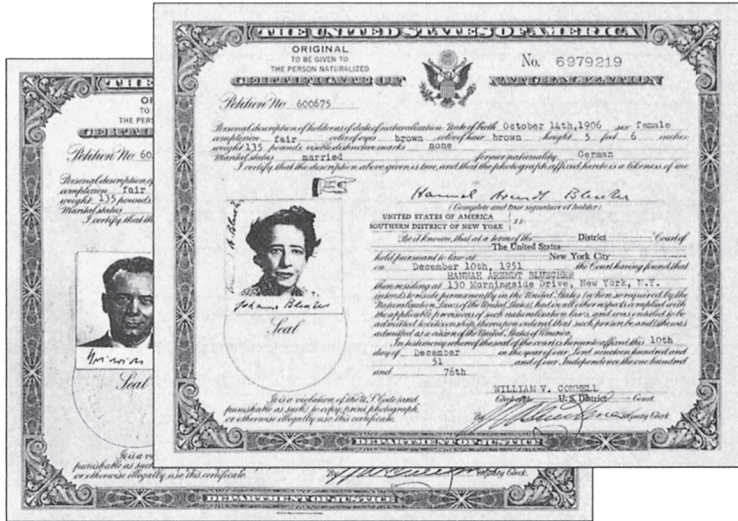 THE UNITED STATES OF AMERICA
ORIGINAL
TO BE GIVEN TO
THE PERSON NATURALIZED
No. 6979219
CERTIFICATE OF NATURALIZATION
Petition No 600675
Personal description of holder as of date of naturalization: Date of birth October 14th, 1906 sex female
complexion fair color of eyes brown color of hair brown height 5 feet 6 inches
weight 135 pounds visible distinctive marks none
Marital status married former nationality German
I certify that the description above given is true, and that the photograph affixed hereto is a likeness of me
Hannah Arendt Bluecher
(Complete and true signature of holder)
UNITED STATES OF AMERICA
SOUTHERN DISTRICT OF NEW YORK ss:
Be it known, that at a term of the District Court of
The United States
held pursuant to law at New York City
on December 10th, 1951 the Court having found that
HANNAH ARENDT BLUECHER
then residing at 130 Morningside Drive, New York, N.Y.
intends to reside permanently in the United States (when so required by the
Naturalization Laws of the United States), had in all other respects complied with
the applicable provisions of such naturalization laws, and was entitled to be
admitted to citizenship, thereupon ordered that such person be and (s)he was
admitted as a citizen of the United States of America.
In testimony whereof the seal of the court is hereunto affixed this 10th
day of December in the year of our Lord nineteen hundred and
51 and of our Independence the one hundred
and 76th
Johanna Bluecher
Seal
WILLIAM V. CONNELL
Clerk of the U.S. District Court.
By Deputy Clerk.
It is a violation of the U.S. Code (and
punishable as such) to copy, print, photograph,
or otherwise illegally use this certificate.
DEPARTMENT OF JUSTICE
THE
TO
THE PERS
CERTIF
Petition No 60
Personal description of
complexion fair
weight 135 pounds
Marital status
I certify that the
Seal
It is a vi
punishable as such
or otherwise illegally use this certificate.
By Deputy Clerk.
DEPARTMENT OF JUSTICE